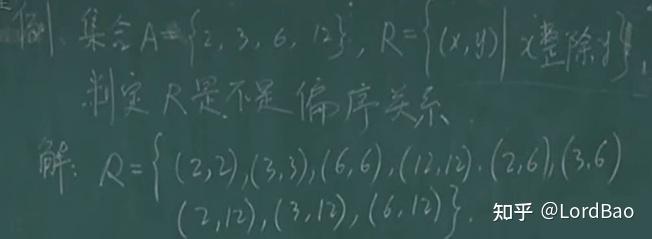 例. 集合A={2, 3, 6, 12}, R={(x,y)| x整除y},
判定R是不是偏序关系
解: R={(2,2),(3,3),(6,6),(12,12),(2,6),(3,6)
(2,12),(3,12),(6,12)}.
知乎 @LordBao